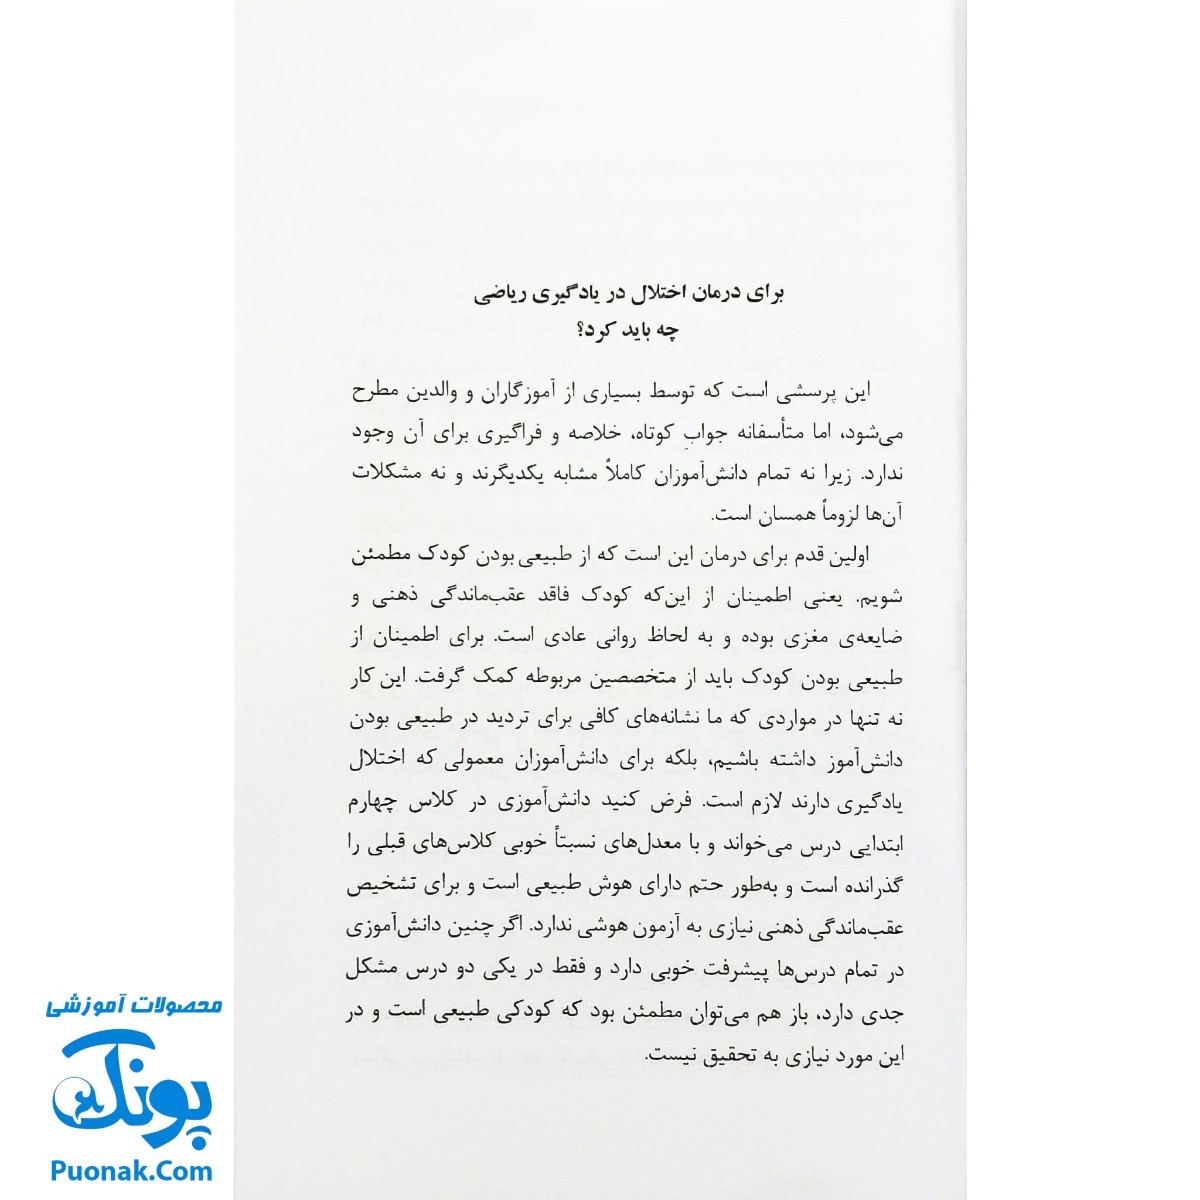 برای درمان اختلال در یادگیری ریاضی
چه باید کرد؟
این پرسشی است که توسط بسیاری از آموزگاران و والدین مطرح
می‌شود، اما متأسفانه جوابِ کوتاه، خلاصه و فراگیری برای آن وجود
ندارد. زیرا نه تمام دانش‌آموزان کاملاً مشابه یکدیگرند و نه مشکلات
آن‌ها لزوماً همسان است.
اولین قدم برای درمان این است که از طبیعی بودن کودک مطمئن
شویم. یعنی اطمینان از این‌که کودک فاقد عقب‌ماندگی ذهنی و
ضایعه‌ی مغزی بوده و به لحاظ روانی عادی است. برای اطمینان از
طبیعی بودن کودک باید از متخصصین مربوطه کمک گرفت. این کار
نه تنها در مواردی که ما نشانه‌های کافی برای تردید در طبیعی بودن
دانش‌آموز داشته باشیم، بلکه برای دانش‌آموزان معمولی که اختلال
یادگیری دارند لازم است. فرض کنید دانش‌آموزی در کلاس چهارم
ابتدایی درس می‌خواند و با معدل‌های نسبتاً خوبی کلاس‌های قبلی را
گذرانده است و به‌طور حتم دارای هوش طبیعی است و برای تشخیص
عقب‌ماندگی ذهنی نیازی به آزمون هوشی ندارد. اگر چنین دانش‌آموزی
در تمام درس‌ها پیشرفت خوبی دارد و فقط در یکی دو درس مشکل
جدی دارد، باز هم می‌توان مطمئن بود که کودکی طبیعی است و در
این مورد نیازی به تحقیق نیست.
محصولات آموزشی
پونک
Puonak.Com